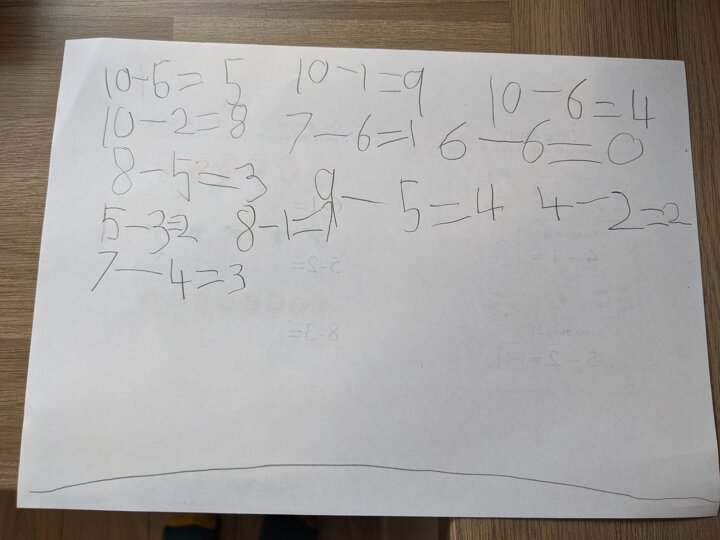 10-5=5 10-1=9 10-6=4
10-2=8 7-6=1 6-6=0
8-5=3 9-5=4 4-2=2
5-3=2 8-1=7
7-4=3
5-2=
8-3=